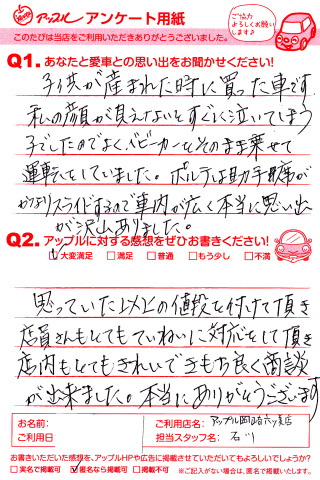 アップル アンケート用紙
ご協力
よろしくお願い
します♪
このたびは当店をご利用いただきありがとうございました。
Q1. あなたと愛車との思い出をお聞かせください!
子供が産まれた時に買った車です。
私の顔が見えないとすぐに泣いてしまう
子でしたのでよくベビーカーをそのまま乗せて
運転をしていました。ポルテは助手席が
かなりスライドするので車内が広く本当に思い出
が沢山ありました。
Q2. アップルに対する感想をぜひお書きください!
□大変満足 □満足 □普通 □もう少し □不満
思っていた以上の値段を付けて頂き
店員さんもとてもていねいに対応をして頂き
店内もとてもきれいできもち良く商談
が出来ました。本当にありがとうございます
お名前: ご利用店名: アップル岡崎六ツ美店
ご利用日 担当スタッフ名: 石川
お書きいただいた感想を、アップルHPや広告に掲載させていただいてもよろしいでしょうか?
□実名で掲載可 ☑匿名なら掲載可 □掲載不可 ※ご記入がない場合は、匿名で掲載いたします。